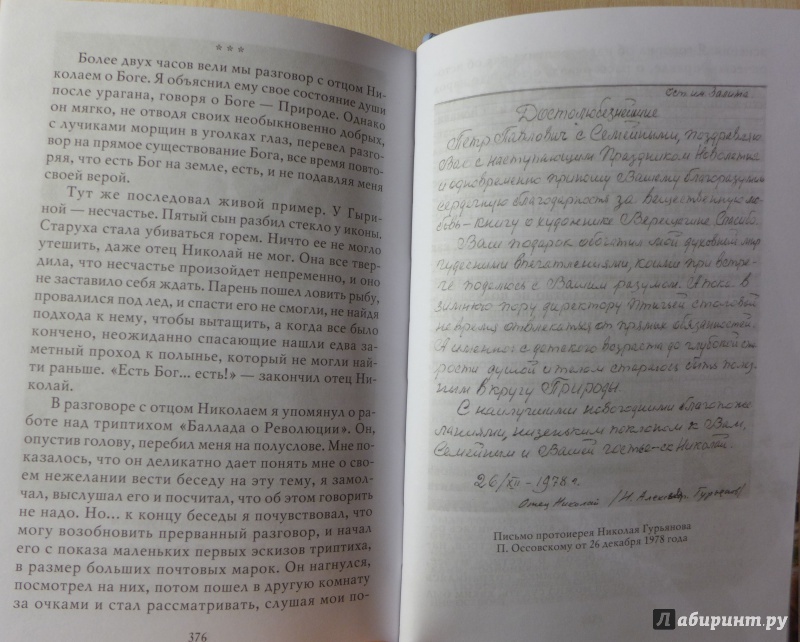 * * *
Более двух часов вели мы разговор с отцом Ни-
колаем о Боге. Я объяснил ему свое состояние души
после урагана, говоря о Боге — Природе. Однако
он мягко, не отводя своих необыкновенно добрых,
с лучиками морщин в уголках глаз, перевел разго-
вор на прямое существование Бога, все время повто-
ряя, что есть Бог на земле, есть, и не подавляя меня
своей верой.
Тут же последовал живой пример. У Гыри-
ной — несчастье. Пятый сын разбил стекло у иконы.
Старуха стала убиваться горем. Ничто ее не могло
утешить, даже отец Николай не мог. Она все твер-
дила, что несчастье произойдет непременно, и оно
не заставило себя ждать. Парень пошел ловить рыбу,
провалился под лед, и спасти его не смогли, не найдя
подхода к нему, чтобы вытащить, а когда все было
кончено, неожиданно спасающие нашли едва за-
метный проход к полынье, который не могли най-
ти раньше. «Есть Бог... есть!» — закончил отец Ни-
колай.
В разговоре с отцом Николаем я упомянул о ра-
боте над триптихом «Баллада о Революции». Он,
опустив голову, перебил меня на полуслове. Мне по-
казалось, что он деликатно дает понять мне о сво-
ем нежелании вести беседу на эту тему, я замол-
чал, выслушал его и посчитал, что об этом говорить
не надо. Но... к концу беседы я почувствовал, что
могу возобновить прерванный разговор, и начал
его с показа маленьких первых эскизов триптиха,
в размер больших почтовых марок. Он нагнулся,
посмотрел на них, потом пошел в другую комнату
за очками и стал рассматривать, слушая мои по-
376
Достолюбезнейшие
Петр Павлович с Семейными, поздравляю
Вас с наступающим Праздником Новолетие
и одновременно приношу Вашему благоразумию
сердечную благодарность за вещественную лю-
бовь — книгу о художнике Верещагине
Ваш подарок обогатил мой духовный мир
чудесными впечатлениями, коими при встре-
че поделюсь с Вашим разумом. А пока в
зимнюю пору директору Птичьей столовой
не время отвлекаться от прямых обязанностей.
А именно: с детского возраста до глубокой ста-
рости душой и телом стараюсь быть полез-
ным в кругу Природы.
С наилучшими новогодними благопоже-
ланиями, низеньким поклоном к Вам,
Семейным и Вашей Николай.
26/XII - 1978 г.
Отец Николай
Письмо протоиерея Николая Гурьянова
П. Оссовскому от 26 декабря 1978 года
Лабиринт.ру